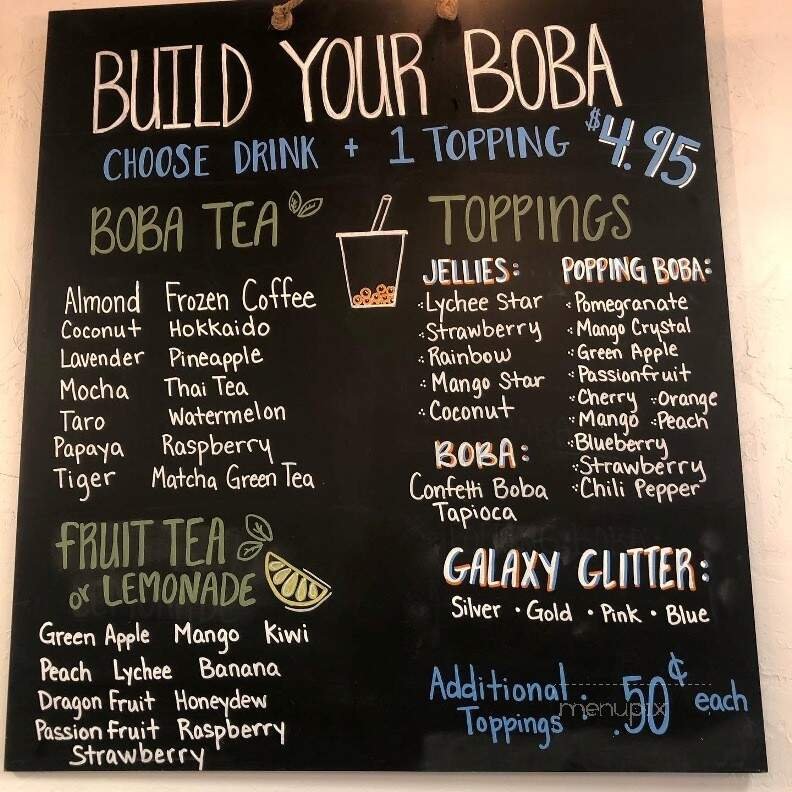 BUILD YOUR BOBA
CHOOSE DRINK + 1 TOPPING $4.95
BOBA TEA
Almond Frozen Coffee
Coconut Hokkaido
Lavender Pineapple
Mocha Thai Tea
Taro Watermelon
Papaya Raspberry
Tiger Matcha Green Tea
FRUIT TEA
or LEMONADE
Green Apple Mango Kiwi
Peach Lychee Banana
Dragon Fruit Honeydew
Passion Fruit Raspberry
Strawberry
TOPPINGS
JELLIES:
Lychee Star
Strawberry
Rainbow
Mango Star
Coconut
BOBA:
Confetti Boba
Tapioca
POPPING BOBA:
Pomegranate
Mango Crystal
Green Apple
Passionfruit
Cherry Orange
Mango Peach
Blueberry
Strawberry
Chili Pepper
GALAXY GLITTER:
Silver • Gold • Pink • Blue
Additional
Toppings : .50¢ each
menupix